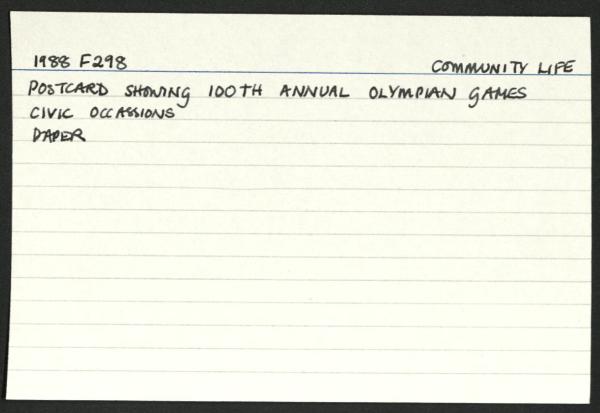 1988 F298 COMMUNITY LIFE
POSTCARD SHOWING 100TH ANNUAL OLYMPIAN GAMES
CIVIC OCCASSIONS
PAPER